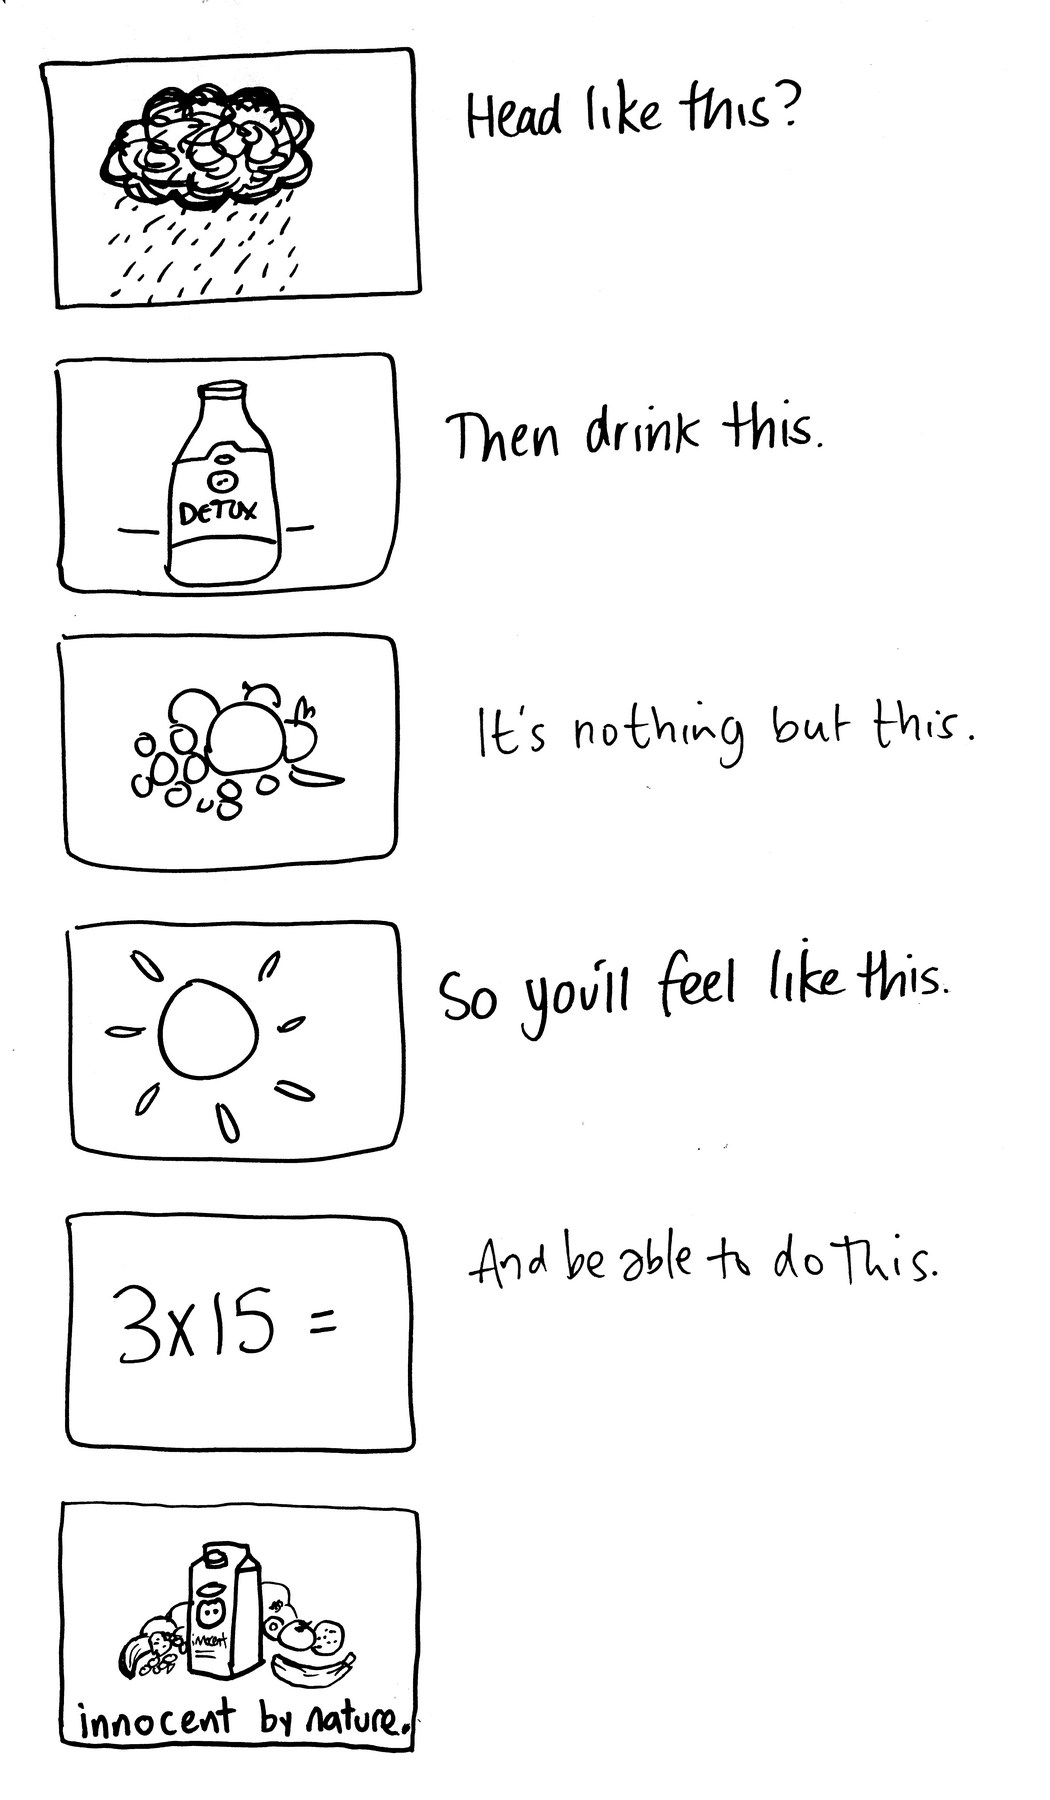 Head like this?
Then drink this.
DETOX
It's nothing but this.
So you'll feel like this.
And be able to do this.
3x15 =
innocent
innocent by nature.